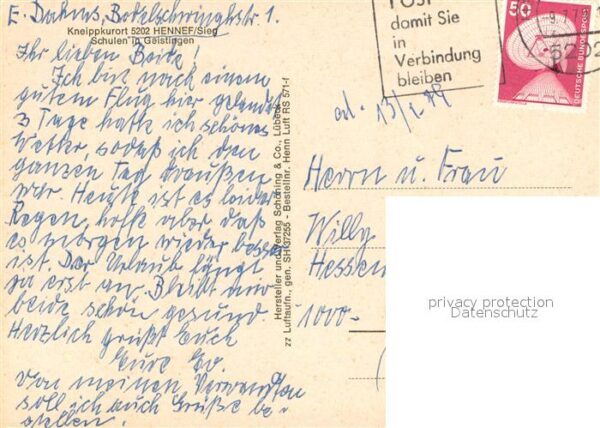 E. Duhns, Bodelschwinghstr. 1.
Kneippkurort 5202 HENNEF/Sieg
Schulen in Geistingen
Ihr lieben Beide!
Ich bin nach einem
gutem Flug hier gelandet
3 Tage hatte ich schönes
Wetter, sodaß ich den
ganzen Tag draußen
war. Heute ist es leider
Regen, hoffe aber daß
es morgen wieder besser
ist. Der Urlaub fängt
ja erst an. Bleibt mir
beide schön gesund.
Herzlich grüßt Euch
Eure
Von meinen Verwandten
soll ich auch Grüße be-
stellen.
Hersteller und Verlag Schöning & Co., Lübeck
zz Luftaufn., gen. SH 37255 - Bestellnr. Henn Luft RS 571-f
POST
damit Sie
in
Verbindung
bleiben
50
DEUTSCHE BUNDESPOST
5202
Herrn u. Frau
Willy
Hessen
1000-
privacy protection
Datenschutz